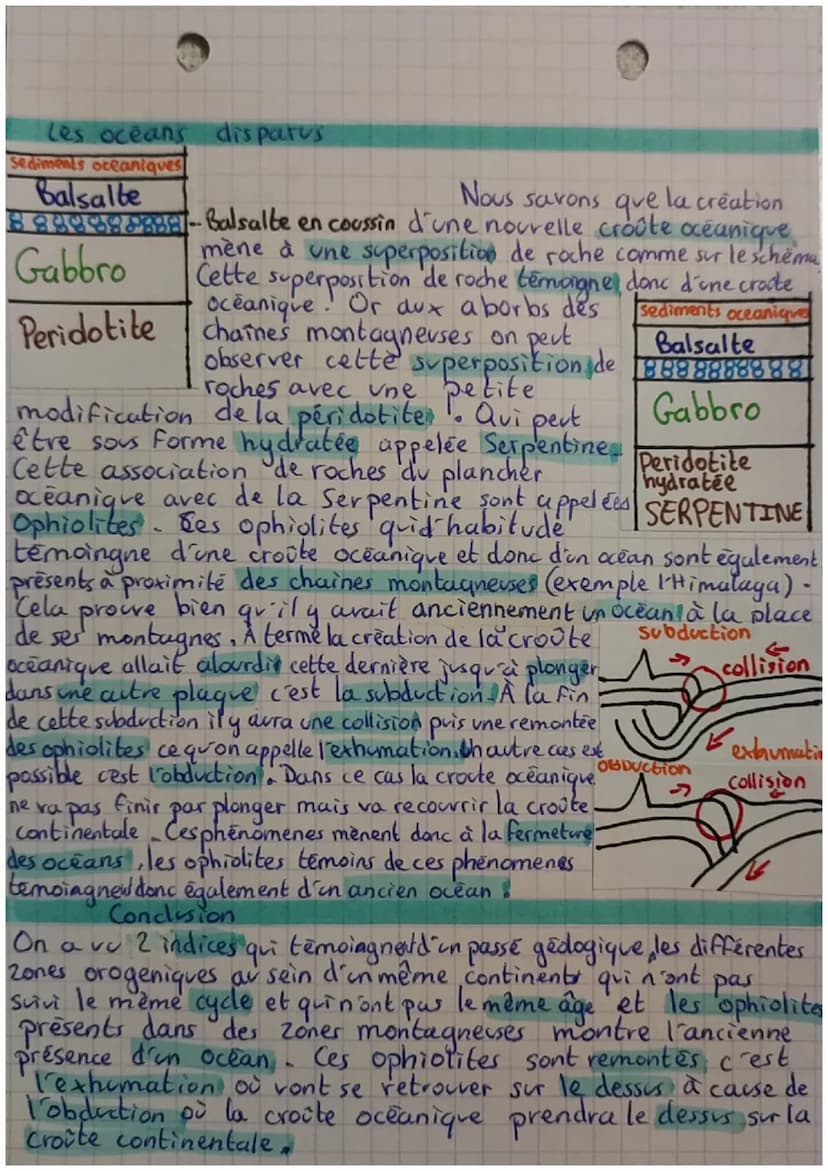 Les océans disparus
Sediments oceaniques
Balsalte
Gabbro
Peridotite
Nous savons que la création
Balsalte en coussin d'une nouvelle croûte océanique
mène à une superposition de roche comme sur le schéma
Cette superposition de roche témoigne donc d'une croute
océanique. Or aux aborbs des
chaînes montagneuses on peut
observer cette superposition de
roches avec une petite
modification de la péridotite. Qui peut
être sous forme hydratée appelée Serpentine
Cette association de roches du plancher
océanique avec de la Serpentine sont appelées
Ophiolites. Ces ophiolites quid'habitude
sediments oceanique
Balsalte
Gabbro
Peridotite
hydratée
SERPENTINE
témoingne d'une croûte océanique et donc d'un océan sont également
présents à proximité des chaines montagneuses (exemple l'Himalaya).
Cela prouve bien qu'il y avait anciennement un océan à la place
de ses montagnes. À terme la création de la croûte
océanique allait alourdir cette dernière jusqu'à plonger
dans une autre plaque c'est la subduction. À la fin
de cette subduction il y aura une collision puis une remontée
des ophiolites ce qu'on appelle l'exhumation. Un autre cas est
possible c'est l'obduction. Dans ce cas la croute océanique
ne va pas finir par plonger mais va recouvrir la croûte
continentale. Ces phénomènes mènent donc à la fermeture
des océans, les ophiolites témoins de ces phénomenes
temoingnent donc également d'un ancien océan !
Subduction
collision
exhumatin
OBDUCTION
collision
Conclusion
On a vu 2 indices qui témoingnent d'un passé géologique, les différentes
zones orogeniques au sein d'un même continent qui n'ont pas
suivi le même cycle et qui n'ont pas le même âge et les ophiolite
présents dans des zones montagneuses montre l'ancienne
présence d'un océan. Ces ophiolites sont remontés c'est
l'exhumation où vont se retrouver sur le dessus à cause de
l'obduction où la croûte océanique prendra le dessus sur la
croûte continentale.